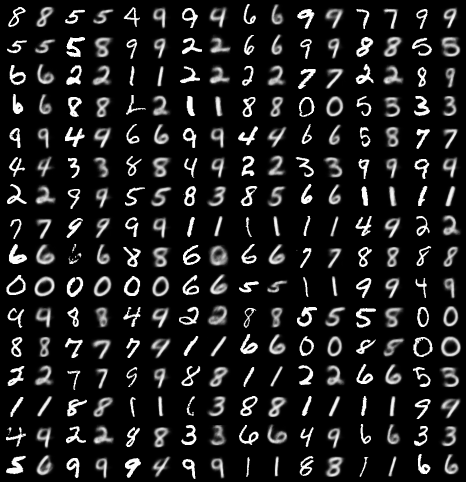 8 8 5 5 4 9 9 4 6 6 9 9 7 7 9 9
5 5 5 8 9 9 2 2 6 6 9 9 8 8 5 5
6 6 2 2 1 1 2 2 2 2 7 7 2 2 8 9
6 6 8 8 2 1 1 8 8 0 0 5 5 3 3
9 9 4 9 6 6 9 9 4 4 6 6 5 8 7 7
4 4 3 3 8 8 4 9 2 2 3 3 9 9 9 9
2 2 9 9 5 5 8 3 8 5 6 6 1 1 1 1
7 7 9 9 9 9 1 1 1 1 1 1 4 9 2 2
6 6 6 6 8 8 6 0 6 6 7 7 8 8 8 8
0 0 0 0 0 0 6 6 5 5 1 1 9 9 4 9
9 9 8 8 4 9 2 2 8 8 5 5 5 8 0 0
8 8 7 7 7 9 1 1 6 6 0 0 8 5 0 0
2 2 7 7 9 9 8 8 1 1 2 2 6 6 5 3
1 1 8 8 1 1 3 8 8 1 1 1 1 9 9
4 9 2 2 8 8 3 3 6 6 4 9 6 6 3 3
5 6 9 9 9 4 9 9 1 1 8 8 1 1 6 6